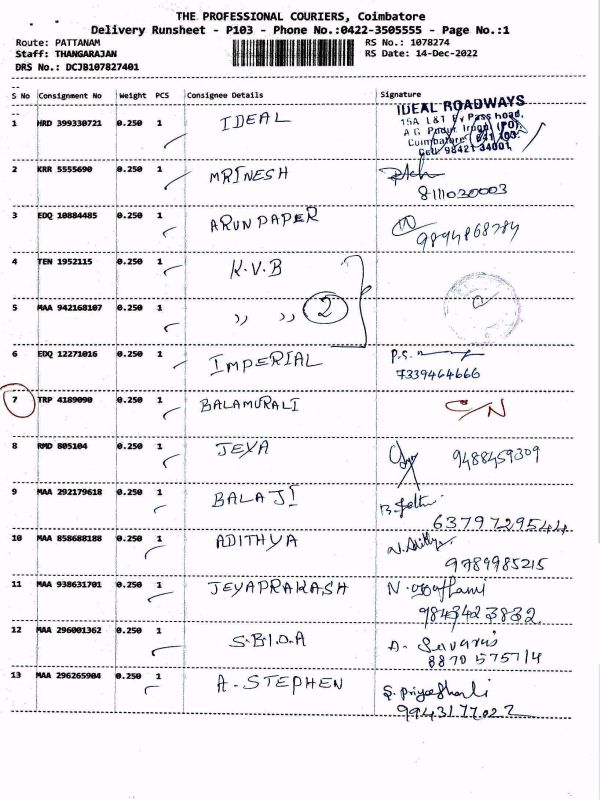 THE PROFESSIONAL COURIERS, Coimbatore
Delivery Runsheet - P103 - Phone No.:0422-3505555 - Page No.:1
Route: PATTANAM RS No.: 1078274
Staff: THANGARAJAN RS Date: 14-Dec-2022
DRS No.: DCJB107827401
S No Consignment No Weight PCS Consignee Details Signature
1 HRD 399330721 0.250 1 IDEAL
IDEAL ROADWAYS
15A L&T By Pass Road,
A G Pudur Irugur (PO)
Coimbatore 641 103.
Cell: 98421 34001
2 KRR 5555690 0.250 1 MRINESH
8111030003
3 EDQ 10884485 0.250 1 ARUN PAPER
9894868784
4 TEN 1952115 0.250 1 K.V.B
5 MAA 942168107 0.250 1 ,, ,, 2
6 EDQ 12271016 0.250 1 IMPERIAL P.S.
7339464666
7 TRP 4189090 0.250 1 BALAMURALI C/N
8 RMD 805104 0.250 1 JEYA 9488459309
9 MAA 292179618 0.250 1 BALAJI
6379729544
10 MAA 858688188 0.250 1 ADITHYA
9789985215
11 MAA 938631701 0.250 1 JEYAPRAKASH
9843423832
12 MAA 296001362 0.250 1 S.B.I.O.A
8870 575714
13 MAA 296265904 0.250 1 A. STEPHEN S. Priyadharli
9943177022